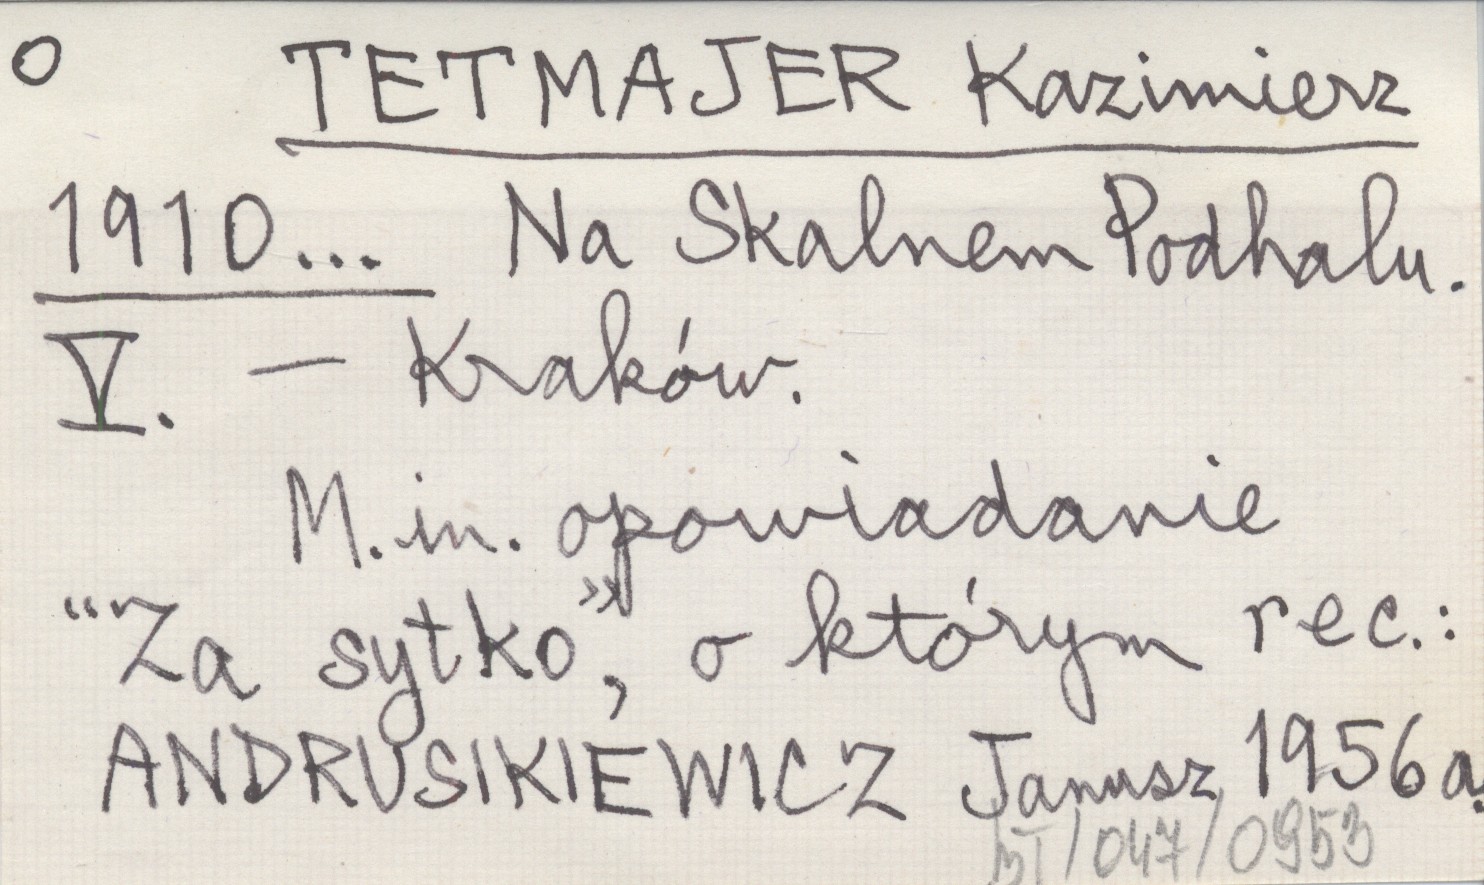 o TETMAJER Kazimierz
1910... Na Skalnem Podhalu.
V. — Kraków.
M. in. opowiadanie
“Za sytko”, o którym rec.:
ANDRUSIKIEWICZ Janusz 1956a.
/047/0953